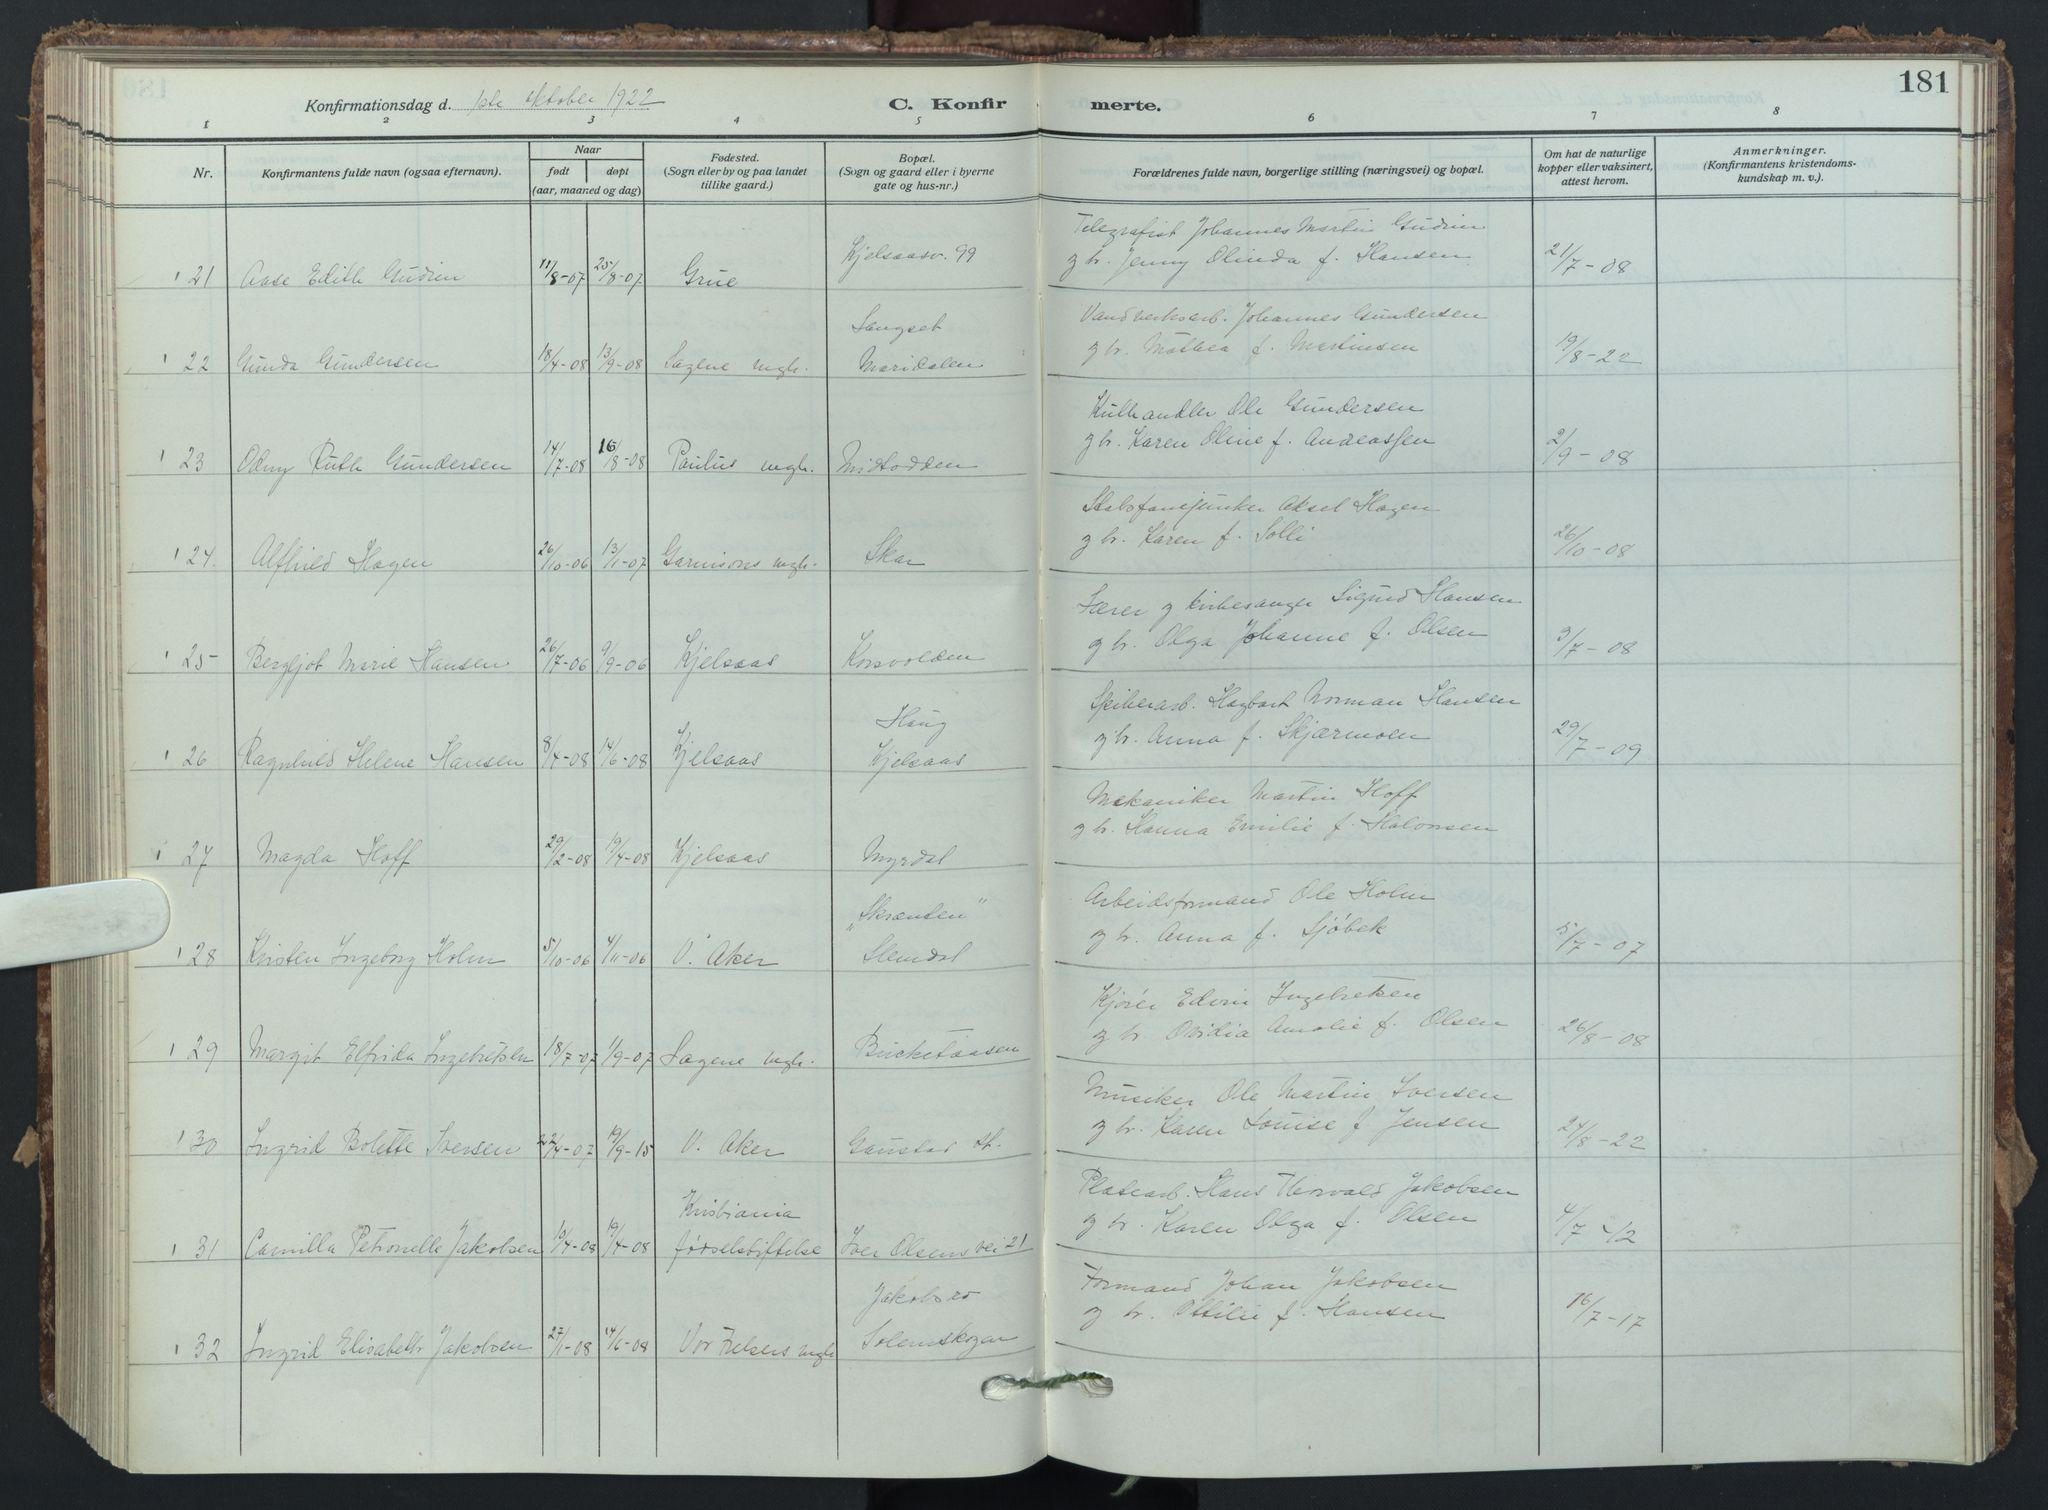 181
Konfirmationsdag d. 1ste oktober 1922
C. Konfirmerte.
1 2 3 4 5 6 7 8
Nr.
Konfirmantens fulde navn (ogsaa efternavn).
Naar
født
døpt
(aar, maaned og dag)
Fødested.
(Sogn eller by og paa landet
tillike gaard.)
Bopæl.
(Sogn og gaard eller i byerne
gate og hus-nr.)
Forældrenes fulde navn, borgerlige stilling (næringsvei) og bopæl.
Om hat de naturlige
kopper eller vaksinert,
attest herom.
Anmerkninger.
(Konfirmantens kristendoms-
kundskap m. v.).
Telegrafist Johannes Martin Gudim
Kjelsaasv. 99
21 Aase Edith Gudim 11/8-07 25/8-07 Grue
og h. Jenny Olinda f. Hansen 21/7-08
Vandverksarb. Johannes Gundersen
Langset
22 Gunda Gundersen 18/4-08 13/9-08 Sagene mgh. Maridalen
og h. Mathea f. Martinsen 19/8-22
Kulhandler Ole Gundersen
23 Odny Ruth Gundersen 14/7-08 16/8-08 Paulus mgh. Midtodden
og h. Karen Oline f. Andreassen 2/9-08
Stabsfanejunker Aksel Hagen
24. Alfhild Hagen 26/10-06 13/1-07 Garnisons mgh. Skar
og h. Karen f. Solli 26/10-08
Lærer og kirkesanger Sigurd Hansen
25 Bergljot Marie Hansen 26/7-06 9/9-06 Kjelsaas Korsvolden
og h. Olga Johanne f. Olsen 3/7-08
Spikerarb. Hagbart Norman Hansen
Haug
26 Ragnhild Helene Hansen 8/4-08 14/6-08 Kjelsaas Kjelsaas
og h. Anna f. Skjærmoen 29/7-09
Mekaniker Martin Hoff
27 Magda Hoff 29/2-08 19/4-08 Kjelsaas Myrdal
og h. Hanna Emilie f. Halonsen
Arbeidsformand Ole Holm
"Skrænten"
28 Kirsten Ingeborg Holm 5/10-06 4/11-06 V. Aker Slemdal
og h. Anna f. Sjöbek 5/7-07
Kjører Edvin Ingebretsen
29 Margit Elfrida Ingebretsen 18/7-07 1/9-07 Sagene mgh. Bucketaasen
og h. Ovidia Amalie f. Olsen 26/8-08
Musiker Ole Martin Iversen
30 Ingrid Bolette Iversen 22/4-07 19/9-15 V. Aker Gaustad st.
og h. Karen Louise f. Jensen 24/8-22
Platearb. Hans Thorvald Jakobsen
Kristiania
31 Camilla Petronelle Jakobsen 10/4-08 19/4-08 fødselsstiftelse Iver Olsens vei 21
og h. Karen Olga f. Olsen 4/7-12
Formand Johan Jakobsen
Jakobsro
32 Ingrid Elisabeth Jakobsen 27/1-08 14/6-08 Vor Frelsers mgh Solemskogen
og h. Ottilie f. Hansen 16/7-17